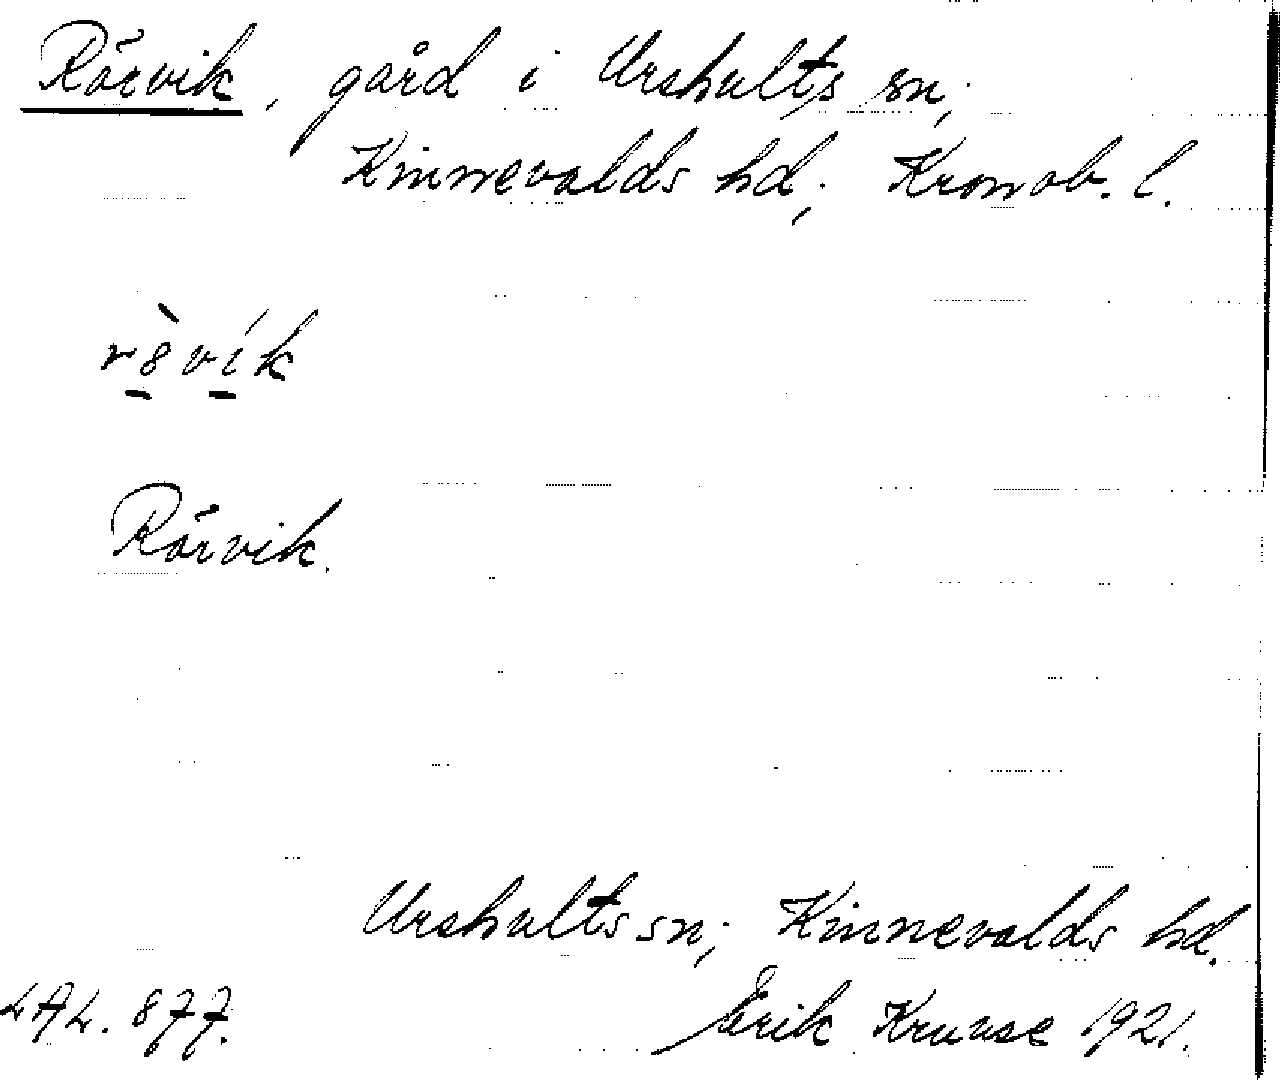 Rörvik, gård i Urshults sn;
Kinnevalds hd; Kronob. l.
rö̀vík
Rörvik.
Urshults sn; Kinnevalds hd.
LAL. 877. Erik Kruuse 1921.